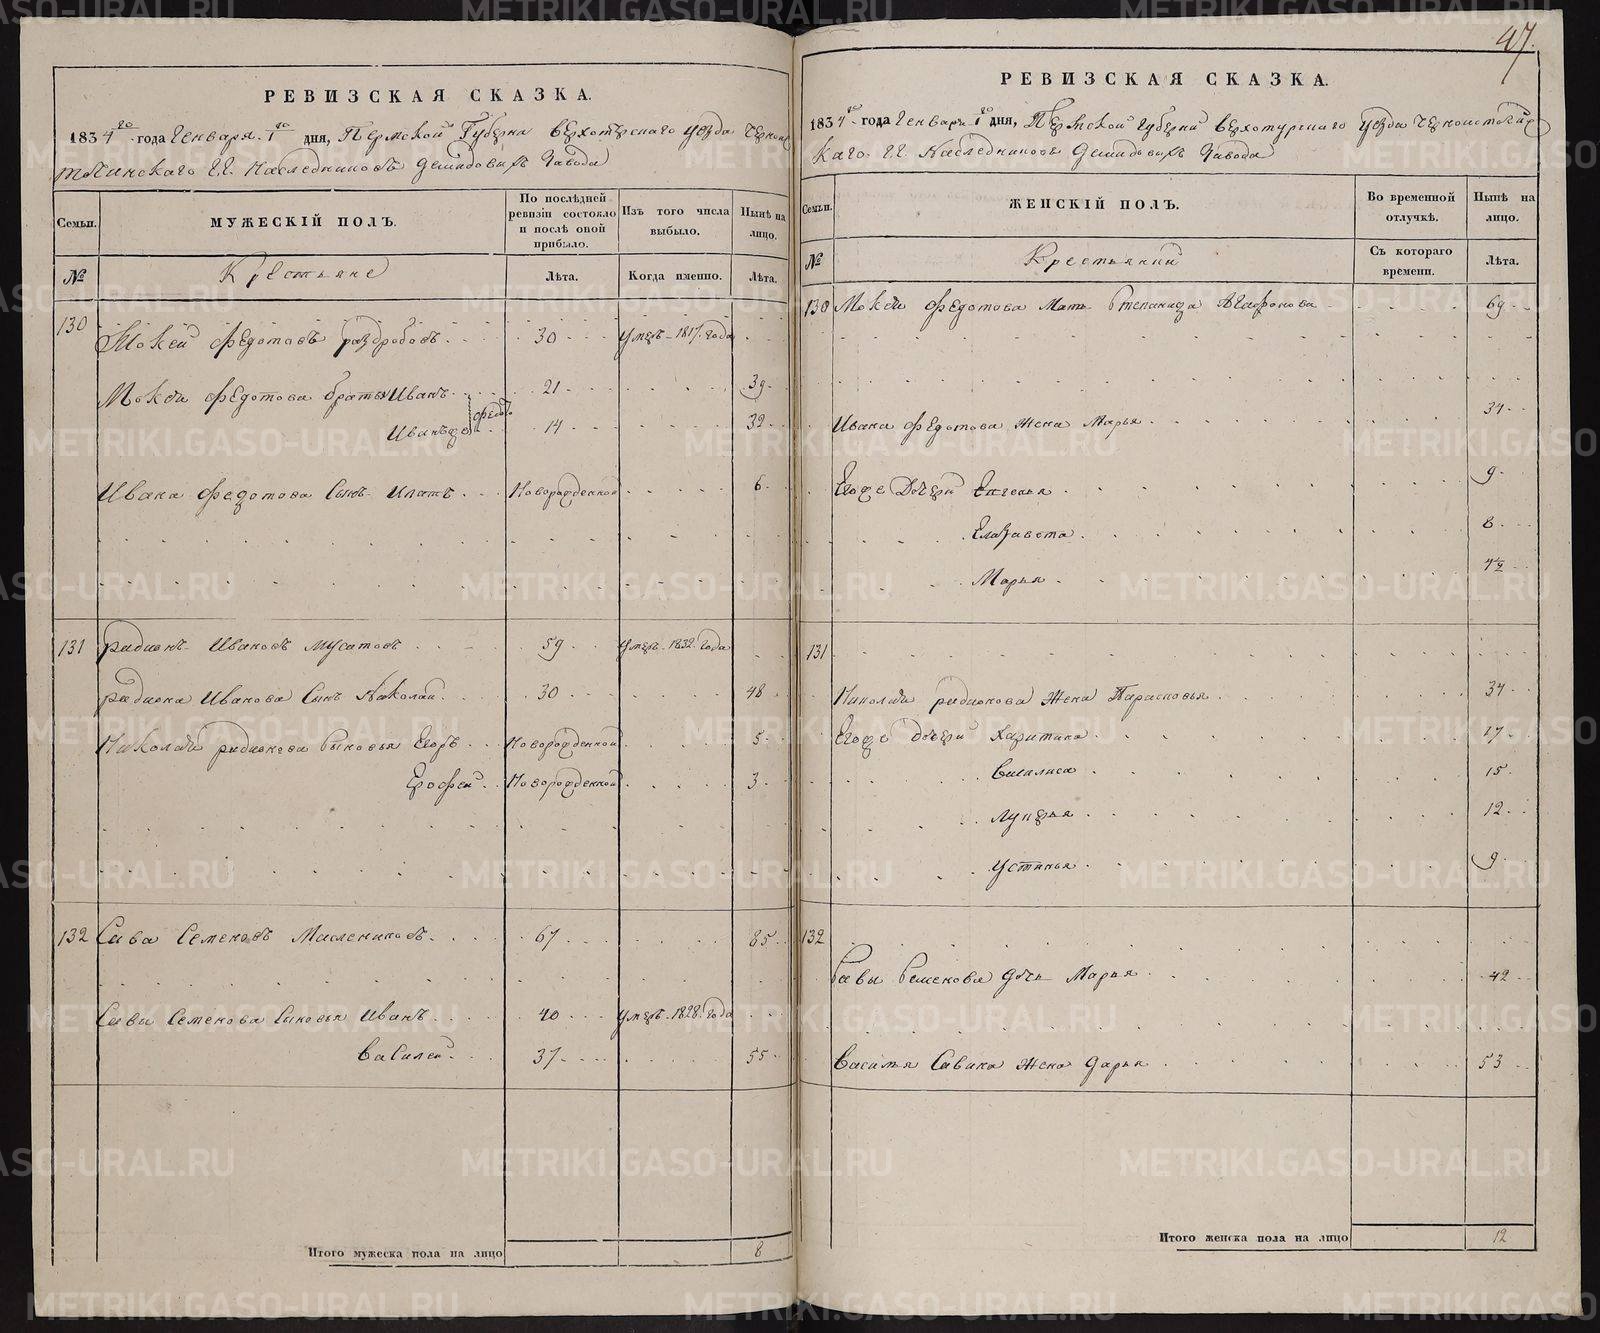 47.
РЕВИЗСКАЯ СКАЗКА.
1834го года Генваря 1го дня, Пермской Губерни Верхотурскаго уезда Черноис
точинскаго ГГ. Наследниковъ Демидовыхъ Завода
Семьи.
МУЖЕСКІЙ ПОЛЪ.
По послѣдней ревизіи состояло и послѣ оной прибыло.
Изъ того числа выбыло.
Нынѣ на лицо.
№
Крестьяне
Лѣта.
Когда именно.
Лѣта.
130 Мокей Федотовъ Раздробовъ 30 умеръ 1817 года
Мокея Федотова братья Иванъ 21 39
Иванъ же 14 32
Ивана Федотова сынъ Ипатъ Новорожденной 6
131 Радионъ Ивановъ Мусатовъ 59 умеръ 1832 года
Радиона Иванова сынъ Николай 30 48
Николая Радионова сыновья Егоръ Новорожденной 5
Ерофей Новорожденной 3
132 Сава Семеновъ Маслениковъ 67 85
Савы Семенова сыновья Иванъ 40 умеръ 1828 года
Василей 37 55
Итого мужеска пола на лицо 8
РЕВИЗСКАЯ СКАЗКА.
1834го года Генваря 1го дня, Пермской Губерни Верхотурскаго уезда Черноисточинс
каго ГГ. Наследниковъ Демидовыхъ Завода
Семьи.
ЖЕНСКІЙ ПОЛЪ.
Во временной отлучкѣ.
Нынѣ на лицо.
№
Крестьянки
Съ котораго времени.
Лѣта.
130 Мокея Федотова Мать Степанида Агафонова 69
Ивана Федотова жена Марья 34
Егоже дочери Евгенья 9
Елизавета 8
Марья 4½
131
Николая Радионова жена Парасковья 34
Егоже дочери Харитина 17
Василиса 15
Лукерья 12
Устинья 9
132
Савы Семенова дочь Марья 42
Василья Савина жена Дарья 53
Итого женска пола на лицо 12
METRIKI.GASO-URAL.RU